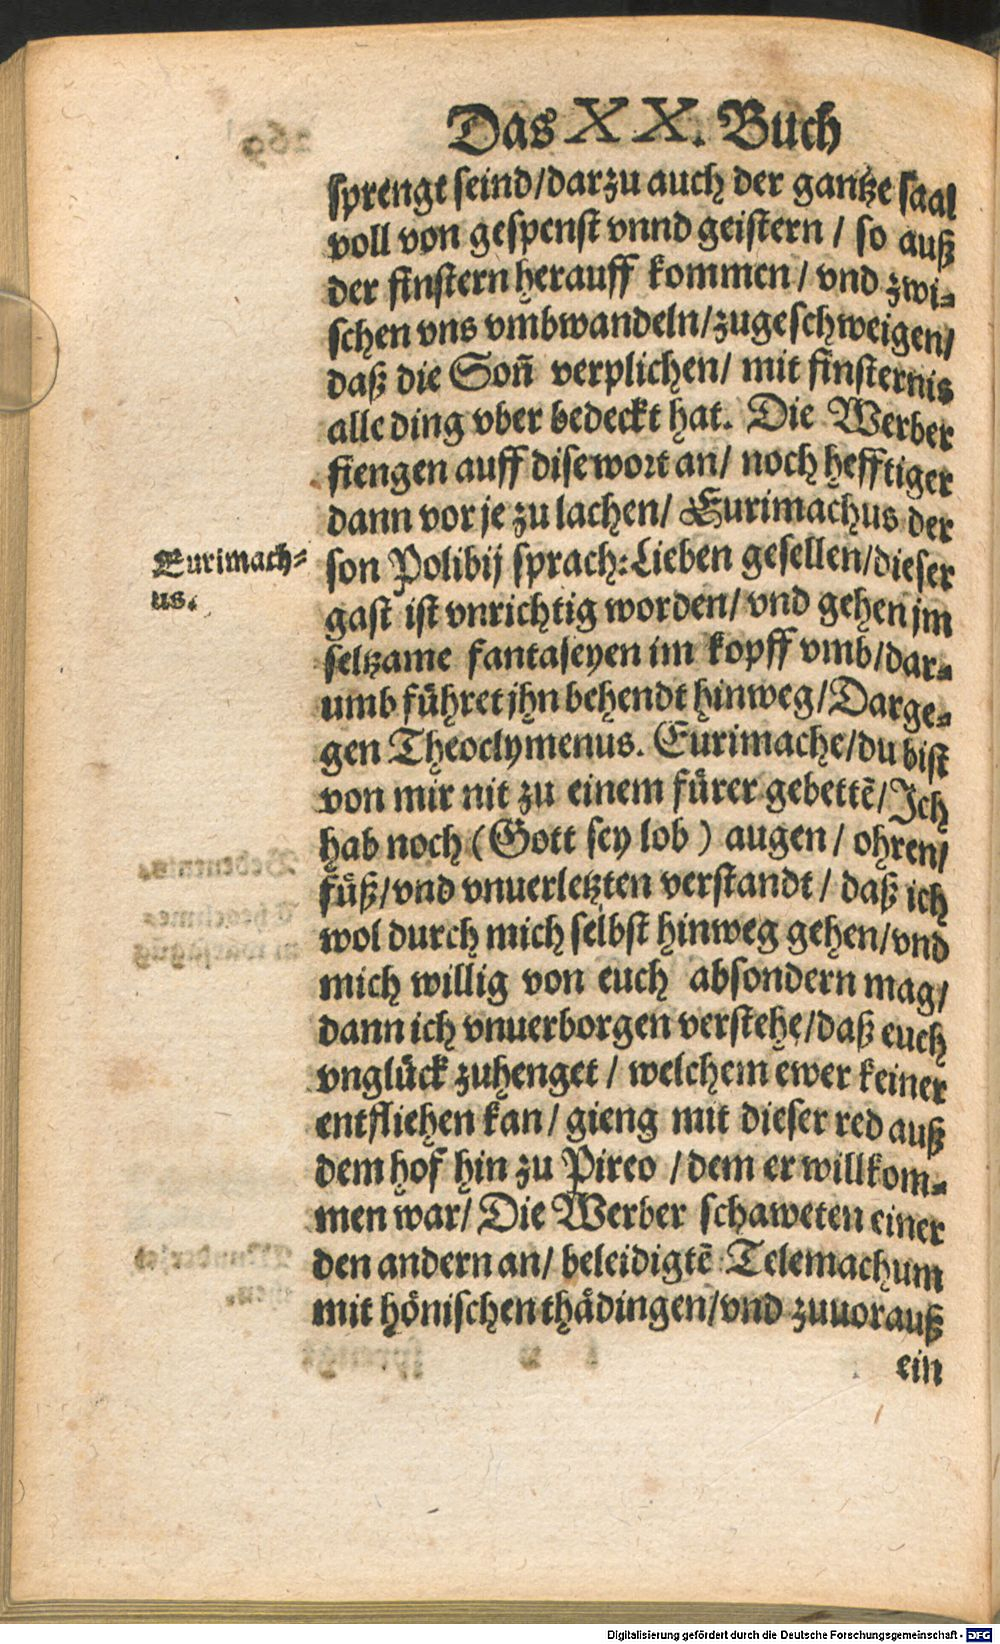 Das XX. Buch
sprengt seind/darzu auch der gantze saal
voll von gespenst vnnd geistern / so auß
der finstern herauff kommen / vnd zwi-
schen vns vmbwandeln/zugeschweigen/
daß die Soñ verplichen/ mit finsternis
alle ding vber bedeckt hat. Die Werber
fiengen auff dise wort an/ noch hefftiger
dann vor je zu lachen/ Eurimachus der
Eurimach-
us.
son Polibij sprach: Lieben gesellen/dieser
gast ist vnrichtig worden/ vnd gehen jm
seltzame fantaseyen im kopff vmb/dar-
umb führet jhn behendt hinweg/Darge-
gen Theoclymenus. Eurimache/du bist
von mir nit zu einem fürer gebettẽ/Ich
hab noch (Gott sey lob) augen / ohren/
füß/vnd vnuerletzten verstandt / daß ich
wol durch mich selbst hinweg gehen/vnd
mich willig von euch absondern mag/
dann ich vnuerborgen verstehe/daß euch
vnglück zuhenget / welchem ewer keiner
entfliehen kan/ gieng mit dieser red auß
dem hof hin zu Pireo /dem er willkom-
men war/ Die Werber schaweten einer
den andern an/ beleidigtẽ Telemachum
mit hönischen thädingen/vnd zuuorauß
ein
Digitalisierung gefördert durch die Deutsche Forschungsgemeinschaft - DFG